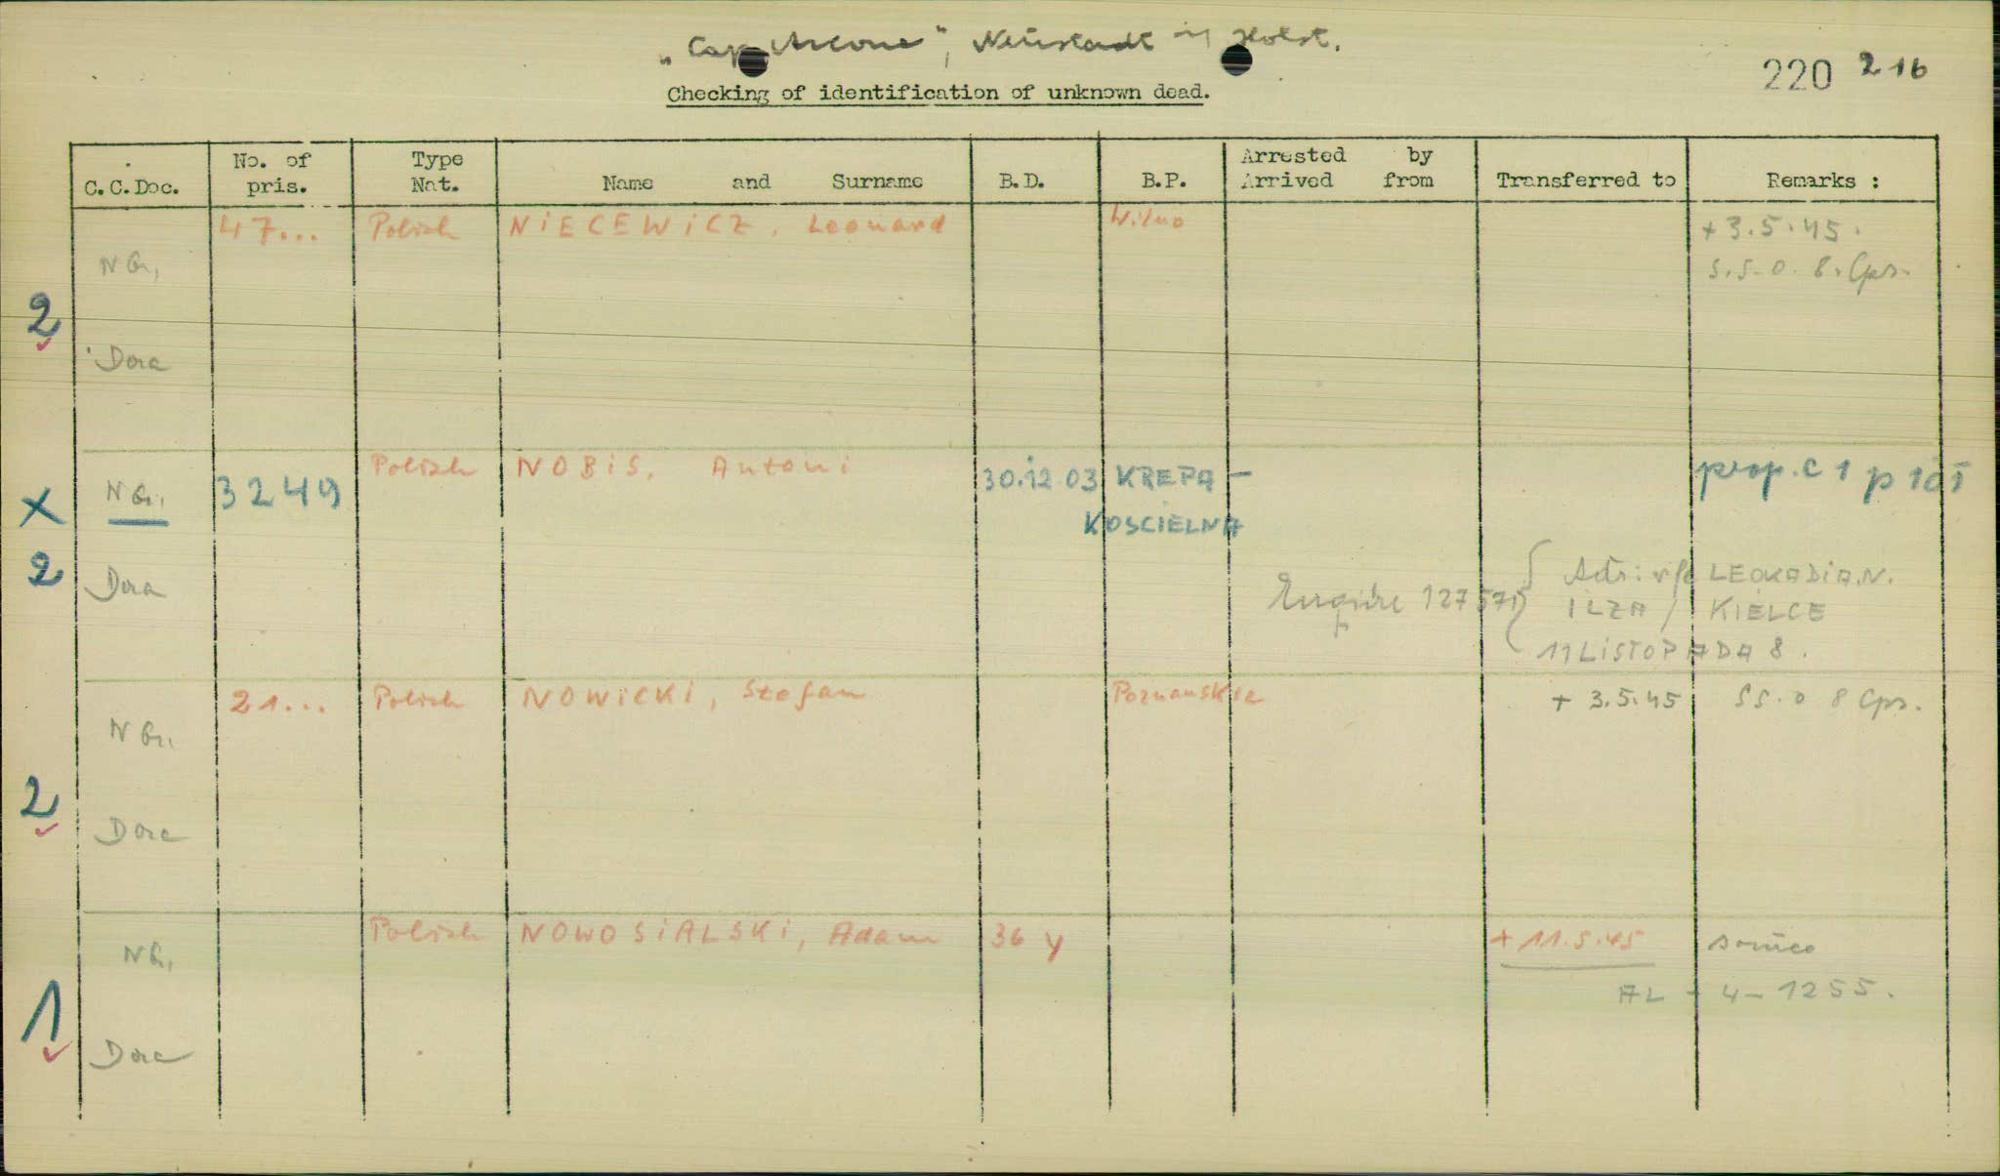 "Cap Arcona", Neustadt in Holst.
220 216
Checking of identification of unknown dead.
C.C.Doc. No. of pris. Type Nat. Name and Surname B.D. B.P. Arrested by Arrived from Transferred to Remarks :
47... Polish NIECEWICZ, Leonard Wilno + 3.5.45.
N G,
S.S.O. 8. Cps.
2
Dora
Polish NOBIS, Antoni
X N G. 3249 30.12.03 KREPA - prop. C 1 p 101
KOSCIELNA
2 Dora
Enquire 127571 Adr: LEOKADIA N.
ILZA / KIELCE
11 LISTOPADA 8.
21... Polish NOWICKI, Stefan Poznanskie + 3.5.45 SS.O 8 Cps.
N G.
2
Dora
Polish NOWOSIALSKI, Adam 36 y + 11.5.45
N G,
AL - 4 - 1255.
1
Dora